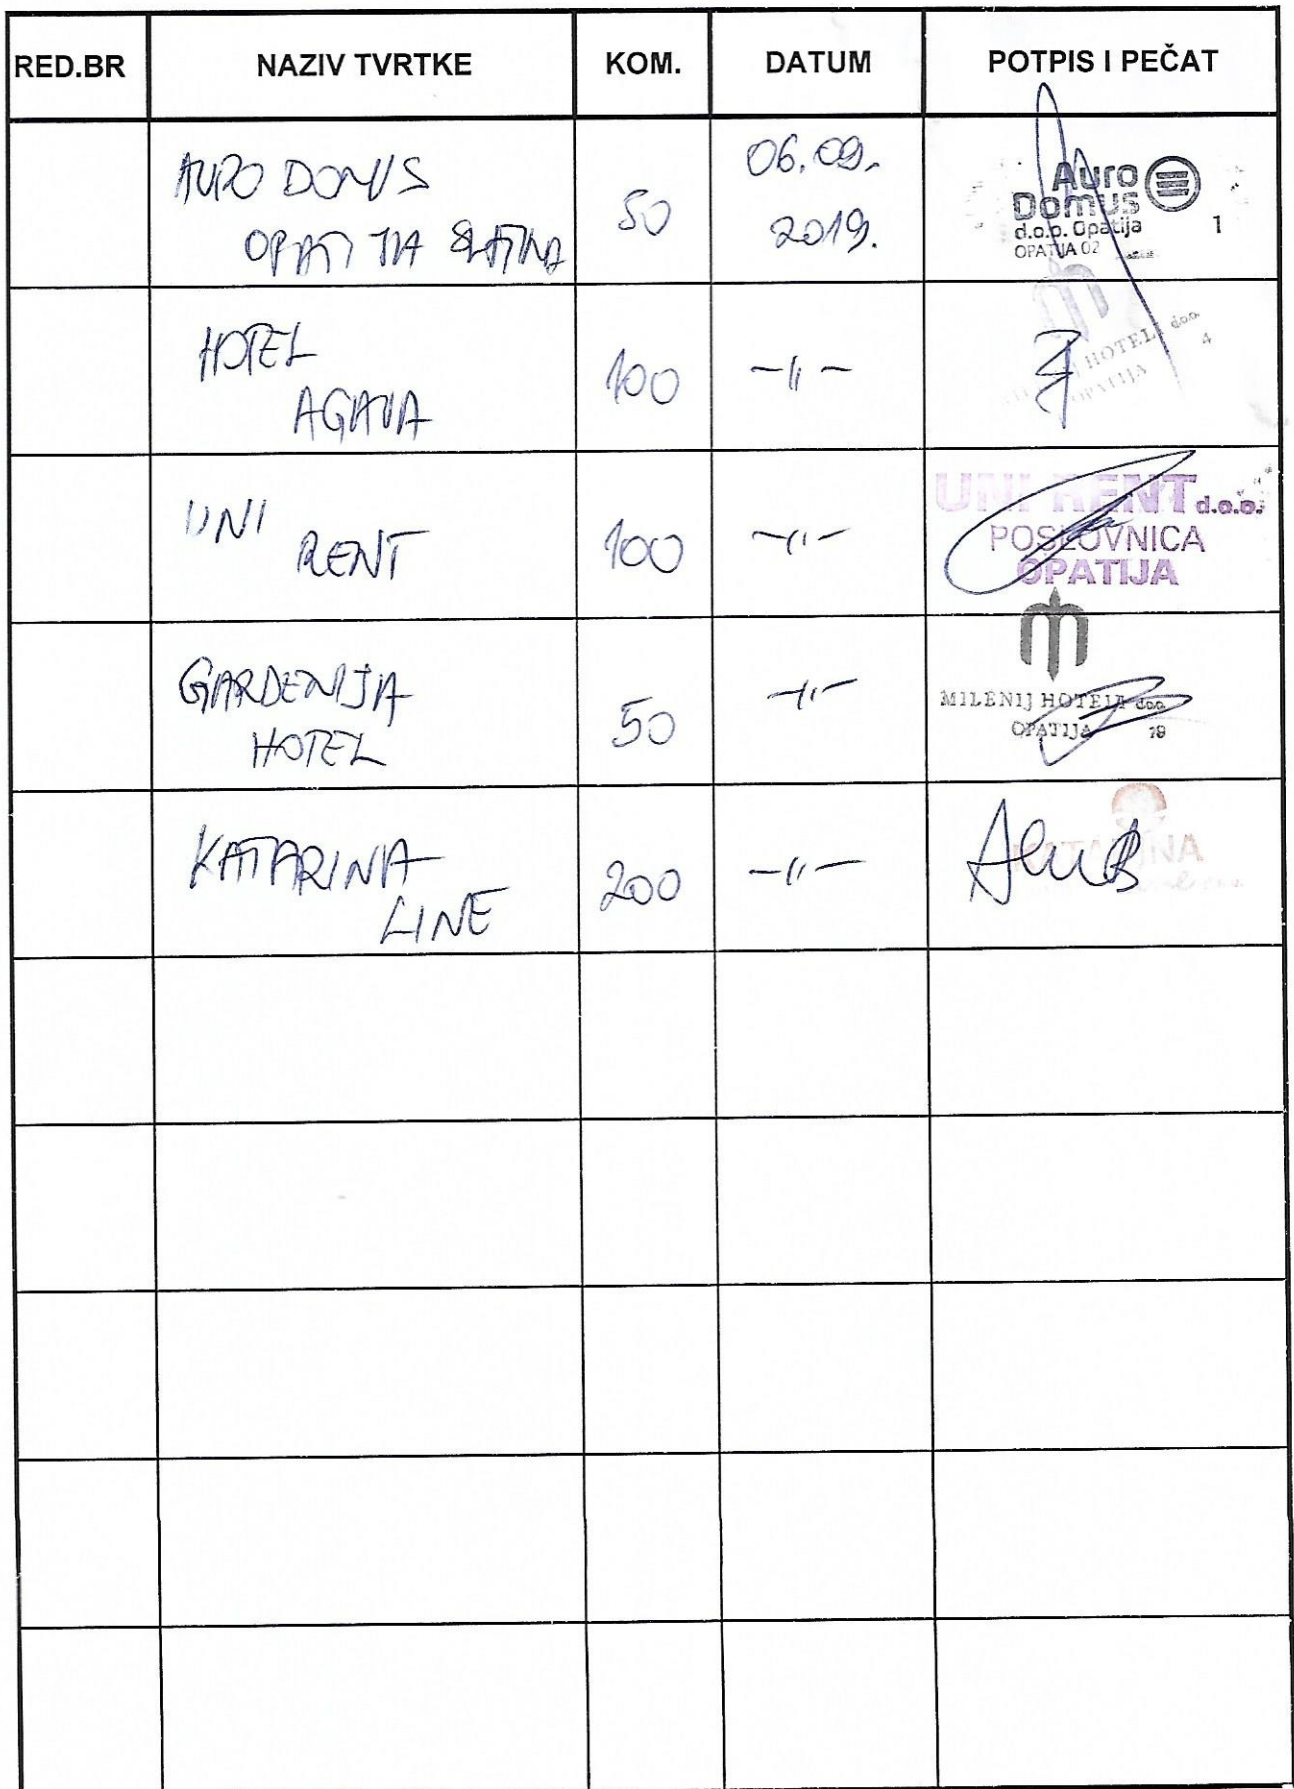 RED.BR NAZIV TVRTKE KOM. DATUM POTPIS I PEČAT
AURO DOMUS
OPATIJA SLATINA
50
06.09.
2019.
Auro
Domus
d.o.o. Opatija
OPATIJA 02
1
HOTEL
AGAVA
100
-11-
HOTELI d.o.o.
4
OPATIJA
UNI
RENT
100
-11-
UNI RENT d.o.o.
POSLOVNICA
OPATIJA
GARDENIJA
HOTEL
50
-11-
MILENIJ HOTELI d.o.o.
OPATIJA 19
KATARINA
LINE
200
-11-
KATARINA